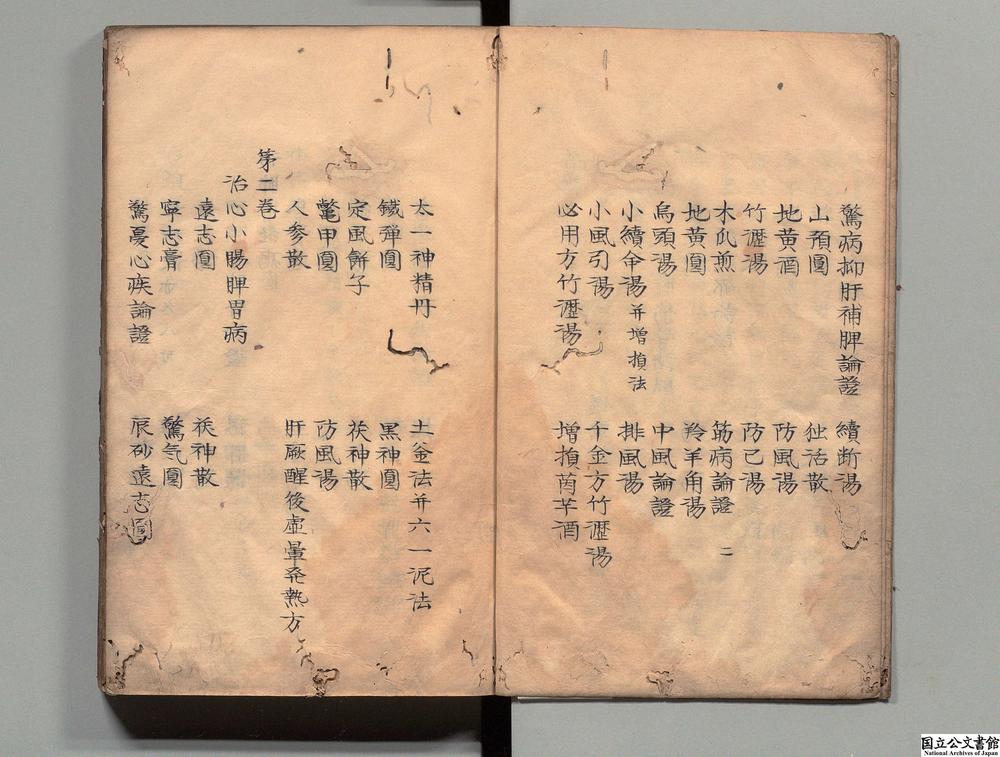 驚病抑肝補脾論證　續断湯
山預圓　独活散
地黄酒　防風湯
竹瀝湯　防已湯
木瓜煎　筋病論證二
地黄圓　羚羊角湯
烏頭湯　中風論證
小續命湯并增損法　排風湯
小風引湯　千金方竹瀝湯
必用方竹瀝湯　增損茵芋酒
太一神精丹　土釜法并六一泥法
鐵弾圓　黒神圓
定風餅子　茯神散
鼈甲圓　防風湯
人参散　肝厥醒後虚暈発熱方
第二巻
治心小腸脾胃病
遠志圓　茯神散
寧志膏　驚气圓
驚憂心疾論證　辰砂遠志圓
国立公文書館
National Archives of Japan